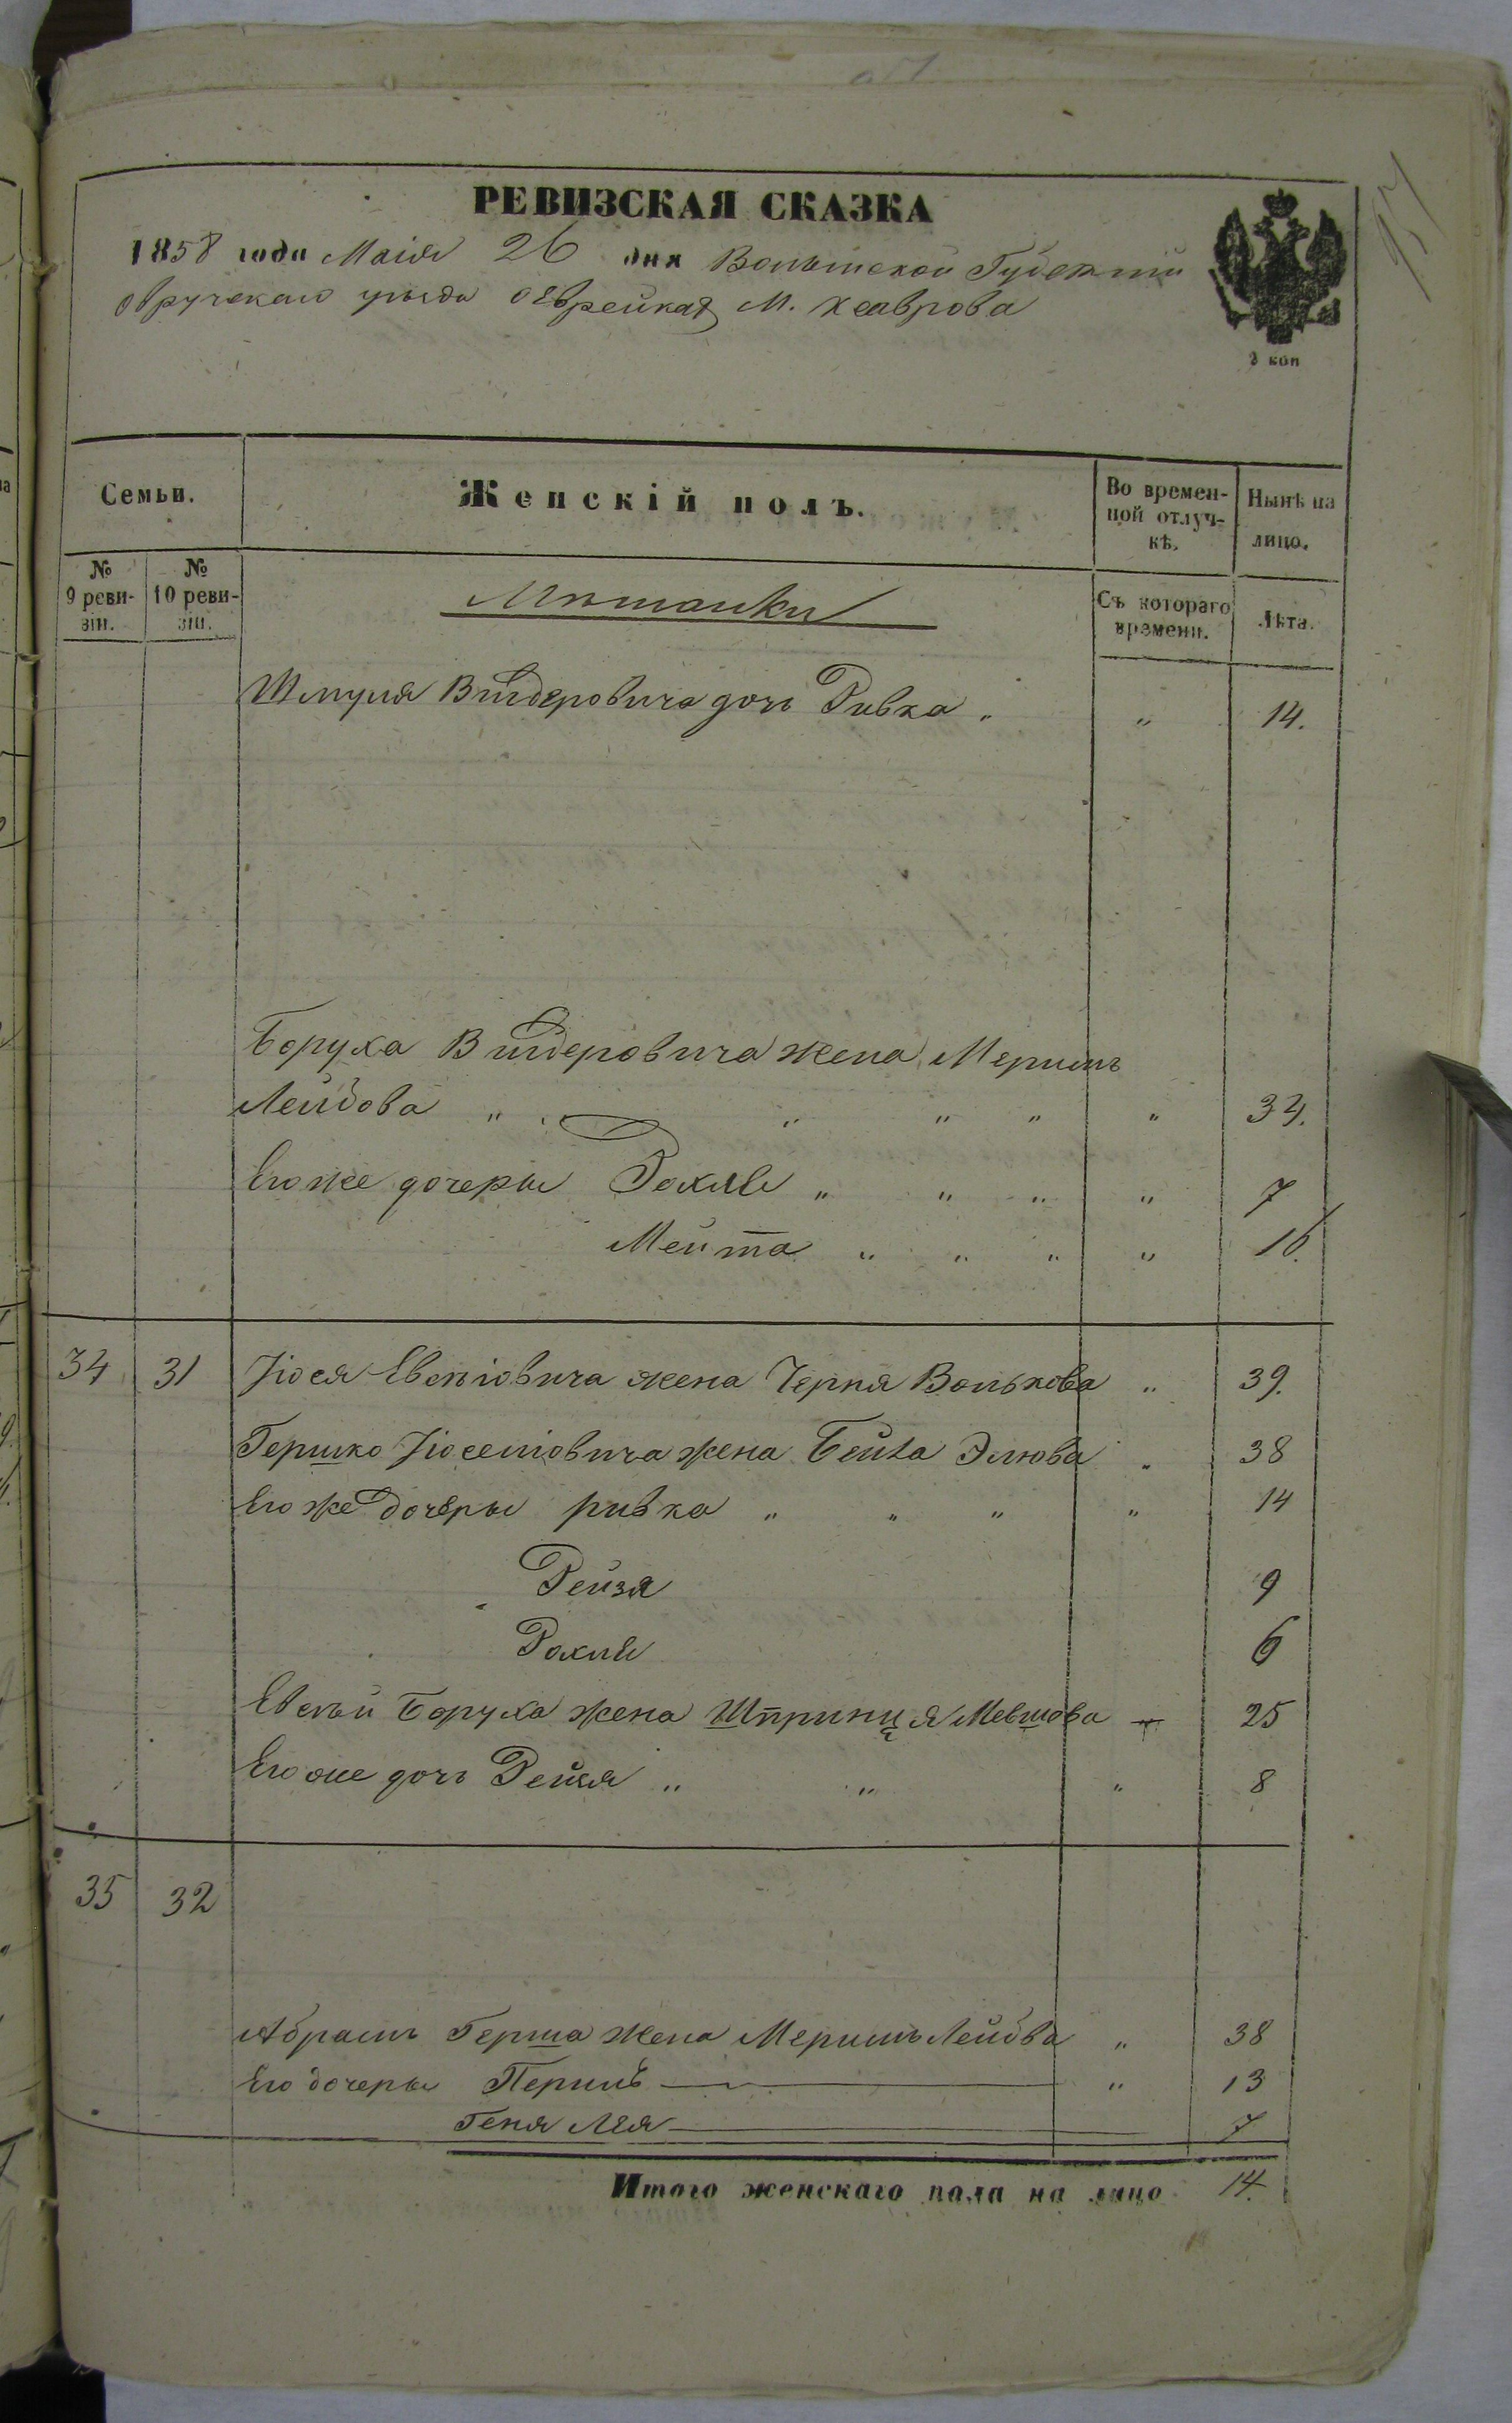 РЕВИЗСКАЯ СКАЗКА
1858 года Маія 26 дня Волынской Губерніи
Овручскаго уѣзда о Еврейкахъ М. Хаврова
3 коп
Семьи.
Женскій полъ.
Во времен-
ной отлуч-
кѣ.
Нынѣ на
лицо.
№
9 реви-
зіи.
№
10 реви-
зіи.
Мѣщанки
Съ котораго
времени.
Лѣта.
Шмуля Видеровича дочь Ривка „ „ 14.
Боруха Видеровича жена Меримъ
Лейбова „ „ „ „ „ 34.
Его же дочеры Рохля „ „ „ „ 7
Мейта „ „ „ „ 16.
34 31 Іося Евелiовича жена Черня Волькова „ 39.
Гершко Іоселiовича жена Бейла Элюва „ 38
Его же дочеры ривка „ „ „ „ 14
Рейзя 9
Рохля 6
Евелъ и Боруха жена Шпринця Мевшова „ 25
Его же дочь Рейзя „ „ „ 8
35 32
Абрамъ Герша жена Меримъ Лейбва „ 38
Его дочеры Перлъ „ 13
Геня Лея 7
Итого женскаго пола на лицо 14.